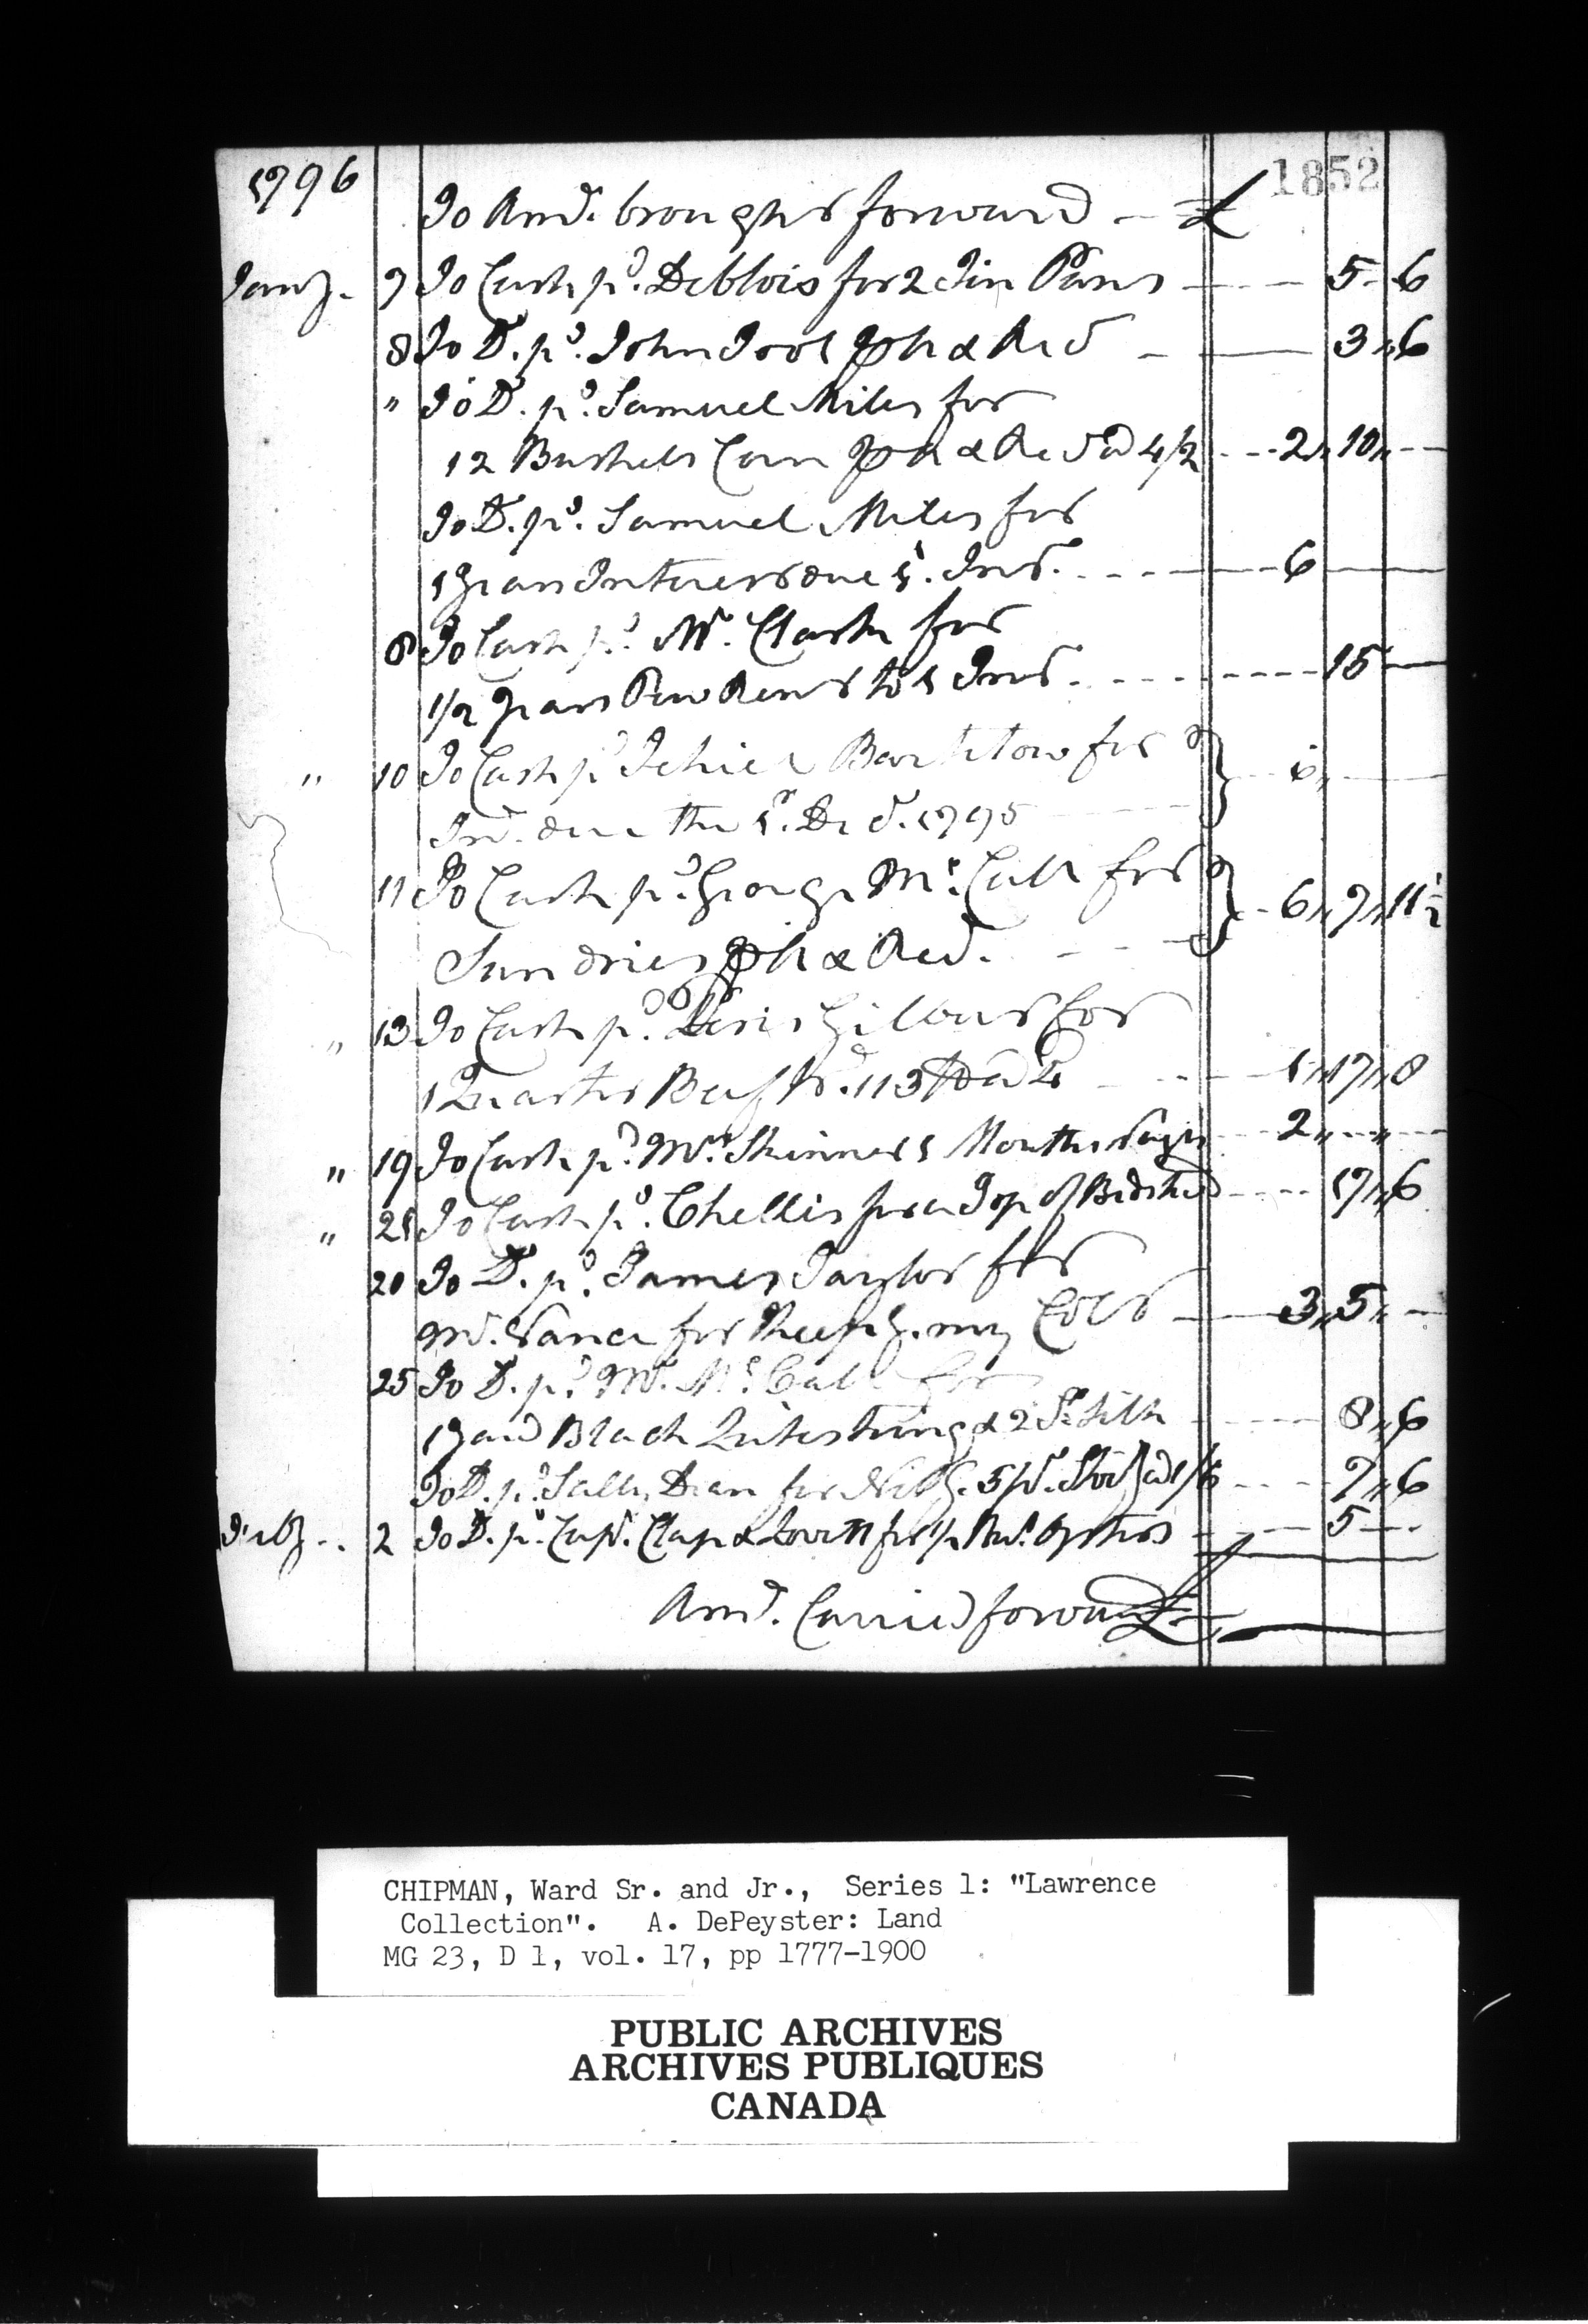 1852
1796
To Amt. brought forward - £
Jany. 7 To Cash pd. Deblois for 2 Tin Pans 5 - 6
8 To Do. pd. John Tool p A & Red 3 " 6
" To Do. pd. Samuel Miles for
12 Bushels Corn p A & Red @ 4/2 2 " 10 "
To Do. pd. Samuel Miles for
1 Years Interest due 1t. Inst. 6
8 To Cash pd. Mr. Clarke for
1/2 Years Pew Rent to 1 Inst. 15
" 10 To Cash pd. Tehiel Bartetow for
Int. due the 1t. Decr. 1795 6 "
11 To Cash pd. George McCall for
Sundries p A & Red. 6 " 7 " 11 1/2
" 13 To Cash pd. Gilbert for
1 Quarter Beef Wt. 113 lb @ 4 1 " 17 " 8
" 19 To Cash pd. Mrs. Skinner 1 Months Wages 2 " "
" 21 To Cash pd. Chellis for a Top of Bedsted 17 " 6
20 To Do. pd. James Taylor for
Mr. Vance for Keepg. my Colt 3 " 5 "
25 To Do. pd. Mr. McCall for
1 Yard Black Lutestring & 2 Sk Silk 8 " 6
To Do. pd. Sally Dean for 5 pr. @ 1/6 7 " 6
Feby. 2 To Do. pd. Capt. Clap & Lovitt for 1/2 Bus. Oysters 5
Amt. Carried forward £
CHIPMAN, Ward Sr. and Jr., Series 1: "Lawrence
Collection". A. DePeyster: Land
MG 23, D 1, vol. 17, pp 1777-1900
PUBLIC ARCHIVES
ARCHIVES PUBLIQUES
CANADA